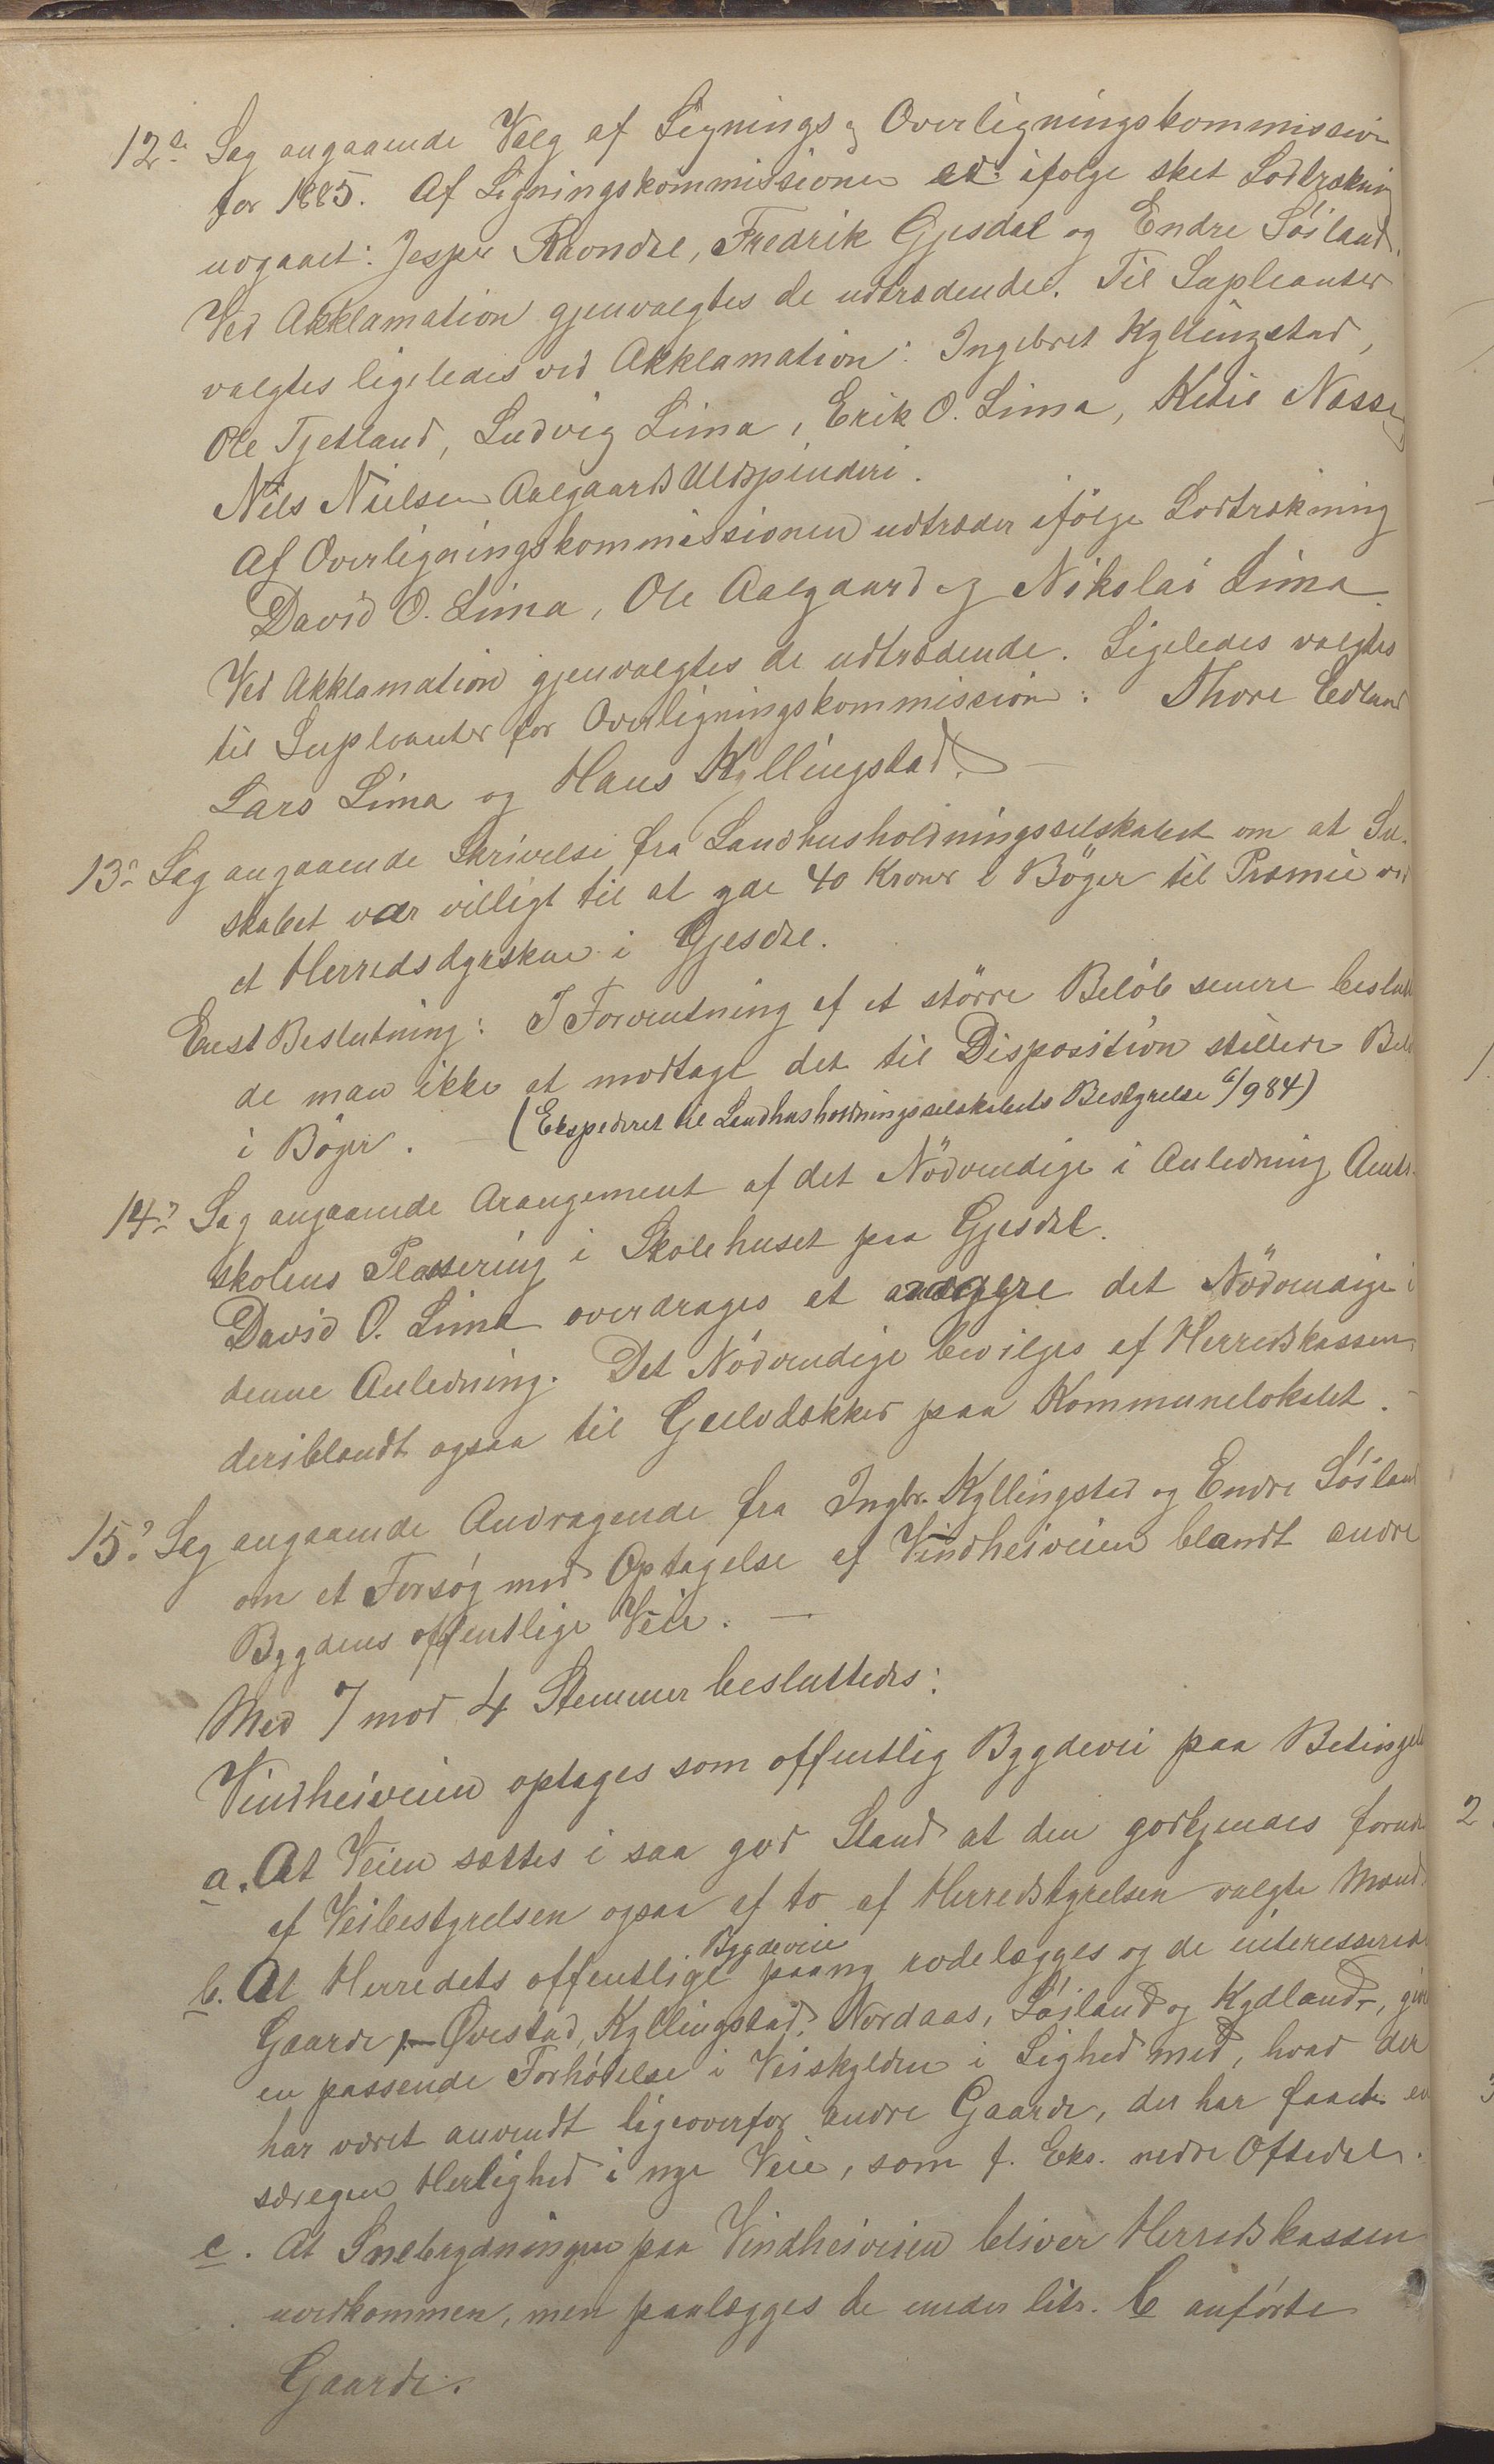 12. Sag angaaende Valg af Lignings og Overligningskommission
for 1885. Af Ligningskommissionen er ifølge sket Lodtrækning
udgaaet: Jesper Ravndal, Fredrik Gjesdal og Endre Söiland.
Ved Akklamation gjenvalgtes de udtrædende. Til Supleanter
valgtes ligeledes ved Akklamation: Ingebret Kyllingstad,
Ole Tjetland, Ludvig Lima, Erik O. Lima, Ketil Næsse
Nils Nielsen Aalgaards Uldspinderi.
Af Overligningskommissionen udtræder ifölge Lodtrækning
David O. Lima, Ole Aalgaard og Nikolai Lima.
Ved Akklamation gjenvalgtes de udtrædende. Ligeledes valgtes
til Supleanter for Overligningskommission: Thore Edland
Lars Lima og Hans Kyllingstad. —
13. Sag angaaende Skrivelse fra Landhusholdningsselskabet om at Sel-
skabet var villigt til at yde 40 Kroner i Böger til Præmie ved
et Herredsdyrskue i Gjesdal.
Enst Beslutning: I Forventning af et större Belöb senere beslut
de man ikke at modtage det til Disposition stillede Bel
i Böger. — (Ekspederet til Landhusholdningsselskabets Bestyrelse 6/9 84)
14. Sag angaaende Arangement af det Nödvendige i Anledning Amts-
skolens Plassering i Skolehuset paa Gjesdal.
David O. Lima overdrages at det Nödvendige i
denne Anledning. Det Nödvendige bevilges af Herredskassen,
deriblandt ogsaa til Gulvdækker paa Kommunelokalet. —
15. Sag angaaende Andragende fra Ingbr. Kyllingstad og Endre Söiland
om et Forsög med Optagelse af Vindheiveien blandt andre
Bygdens offentlige Veie. —
Med 7 mod 4 Stemmer besluttedes:
Vindheiveien optages som offentlig Bygdevei paa Betingels
a. At Veien sættes i saa god Stand at den godkjendes foruden
af Veibestyrelsen ogsaa af to af Herredstyrelsen valgte Mænd.
b. At Herredets offentlige Bygdeveie paany rodelægges og de interesserede
Gaarde, Övestad, Kyllingstad, Nordaas, Söiland og Kydland, give
en passende Forhöielse i Veiskylden i Lighed med, hvad der
har været anvendt ligeoverfor andre Gaarde, der har faaet en
særegen Herlighed i nye Veie, som f. Eks. nedre Oftedal.
c. At Snebrydningen paa Vindheiveien bliver Herredskassen
uvedkommen, men paalægges de under litr. b anförte
Gaarde.